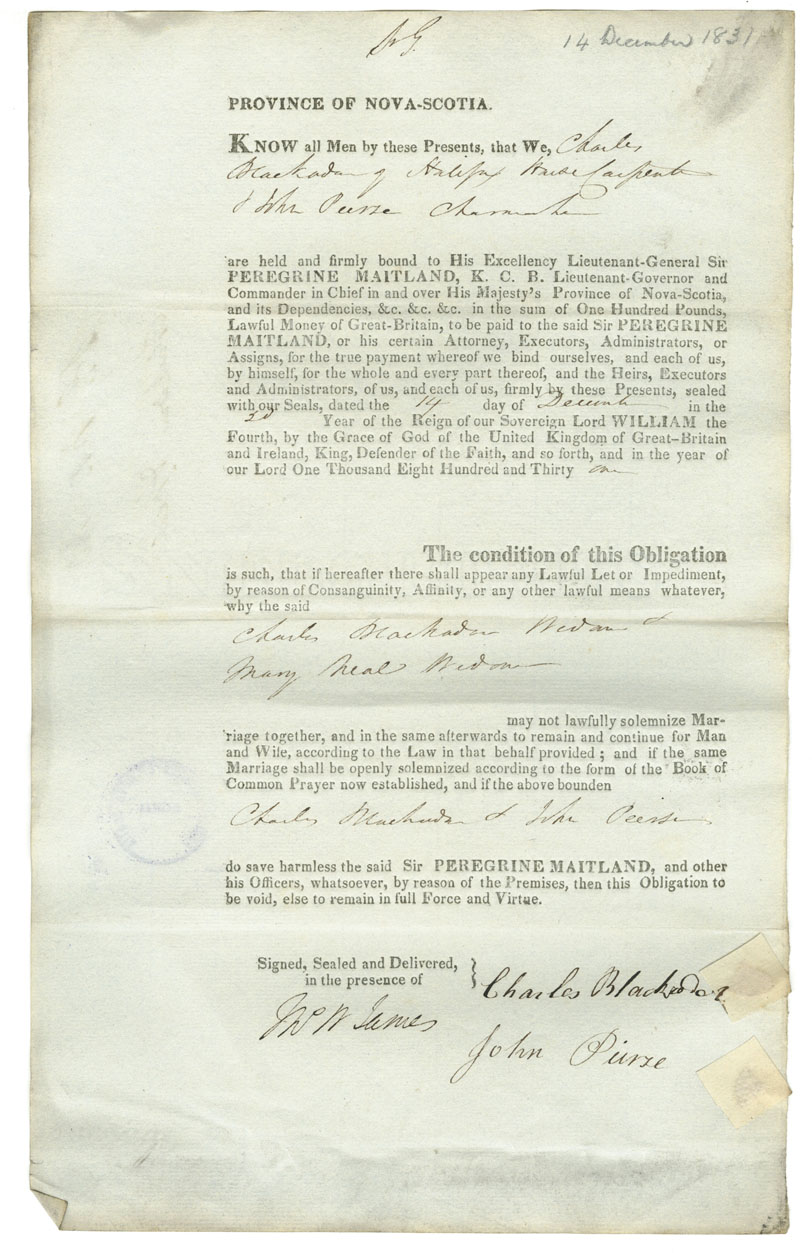 14 December 1831
PROVINCE OF NOVA-SCOTIA.
KNOW all Men by these Presents, that We, Charles
Blackadar of Halifax House Carpenter
& John Pierse
are held and firmly bound to His Excellency Lieutenant-General Sir
PEREGRINE MAITLAND, K. C. B. Lieutenant-Governor and
Commander in Chief in and over His Majesty's Province of Nova-Scotia,
and its Dependencies, &c. &c. &c. in the sum of One Hundred Pounds,
Lawful Money of Great-Britain, to be paid to the said Sir PEREGRINE
MAITLAND, or his certain Attorney, Executors, Administrators, or
Assigns, for the true payment whereof we bind ourselves, and each of us,
by himself, for the whole and every part thereof, and the Heirs, Executors
and Administrators, of us, and each of us, firmly by these Presents, sealed
with our Seals, dated the 14 day of December in the
2d Year of the Reign of our Sovereign Lord WILLIAM the
Fourth, by the Grace of God of the United Kingdom of Great-Britain
and Ireland, King, Defender of the Faith, and so forth, and in the year of
our Lord One Thousand Eight Hundred and Thirty one
The condition of this Obligation
is such, that if hereafter there shall appear any Lawful Let or Impediment,
by reason of Consanguinity, Affinity, or any other lawful means whatever,
why the said
Charles Blackadar Widower &
Mary Neal Widow
may not lawfully solemnize Mar-
riage together, and in the same afterwards to remain and continue for Man
and Wife, according to the Law in that behalf provided ; and if the same
Marriage shall be openly solemnized according to the form of the Book of
Common Prayer now established, and if the above bounden
Charles Blackadar & John Pierse
do save harmless the said Sir PEREGRINE MAITLAND, and other
his Officers, whatsoever, by reason of the Premises, then this Obligation to
be void, else to remain in full Force and Virtue.
Signed, Sealed and Delivered,
in the presence of
Charles Blackadar
Thos W James
John Pierse